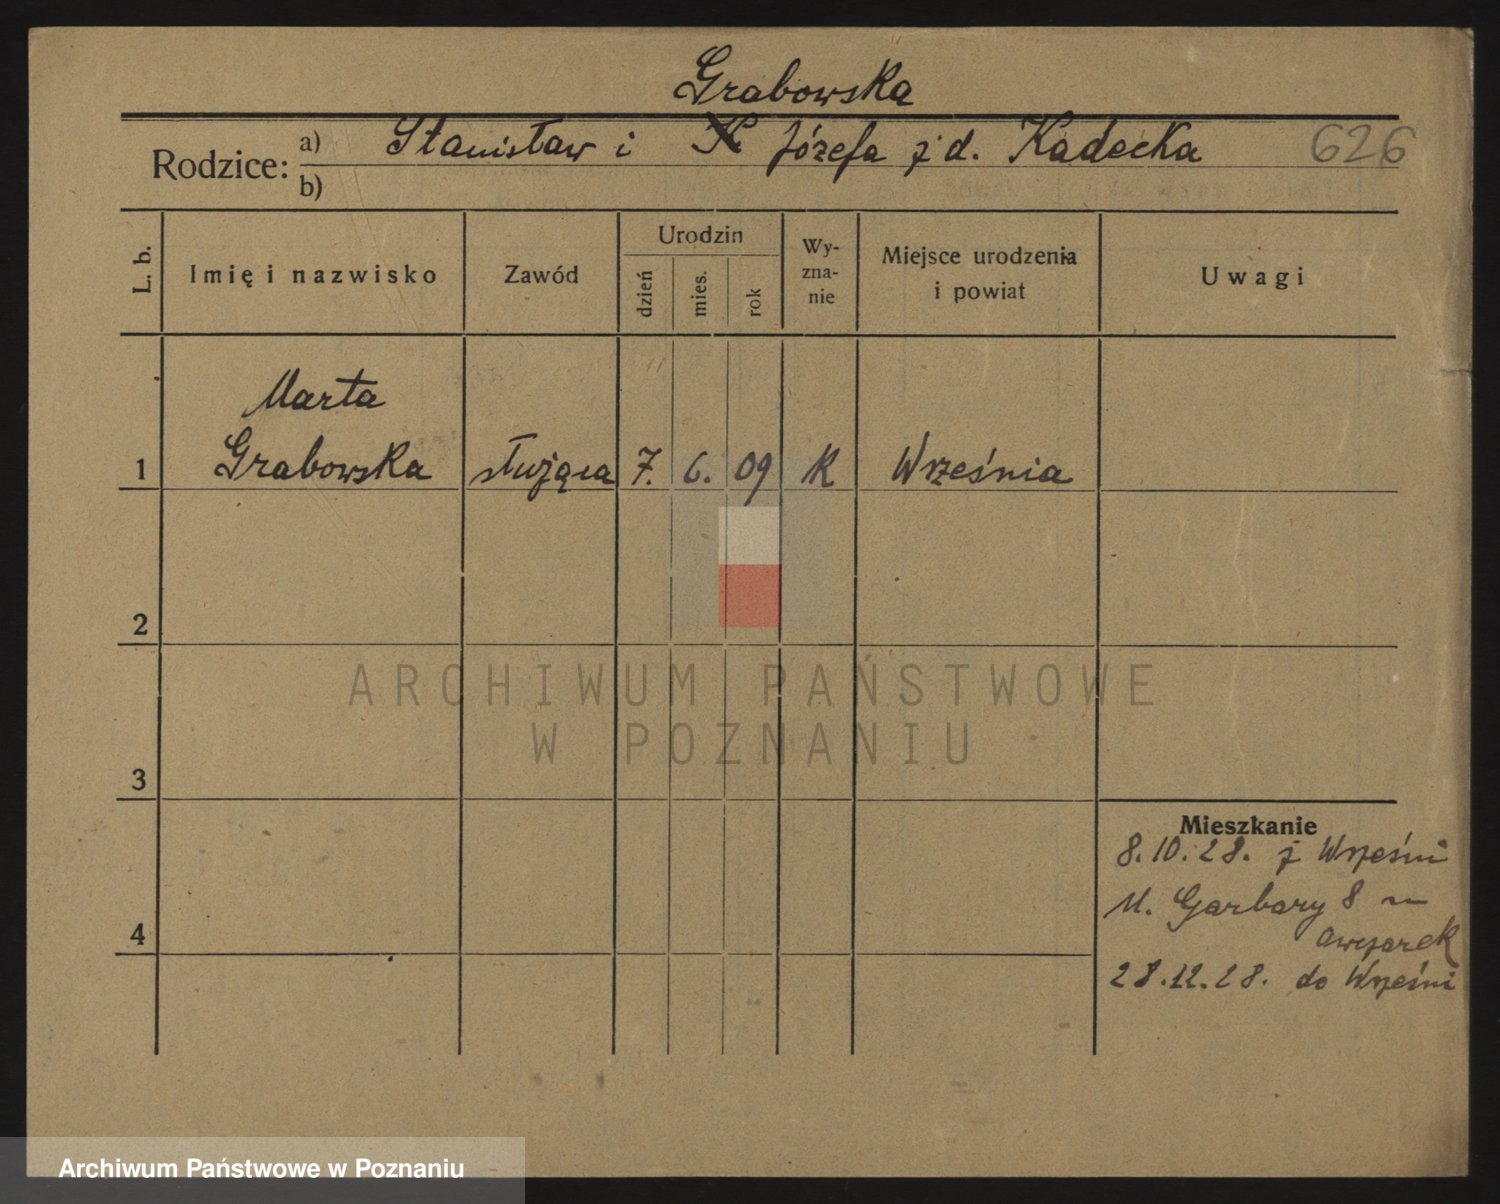 Grabowska
Rodzice: a) Stanisław i Józefa z d. Kadecka 626
b)
L. b. Imię i nazwisko Zawód Urodzin dzień mies. rok Wy-zna-nie Miejsce urodzenia i powiat Uwagi
Marta
1 Grabowska służąca 7. 6. 09 K Września
2
ARCHIWUM PAŃSTWOWE
W POZNANIU
3
Mieszkanie
8.10.28. z Wrześni
Garbary 8
4
Owczarek
28.12.28. do Wrześni
Archiwum Państwowe w Poznaniu